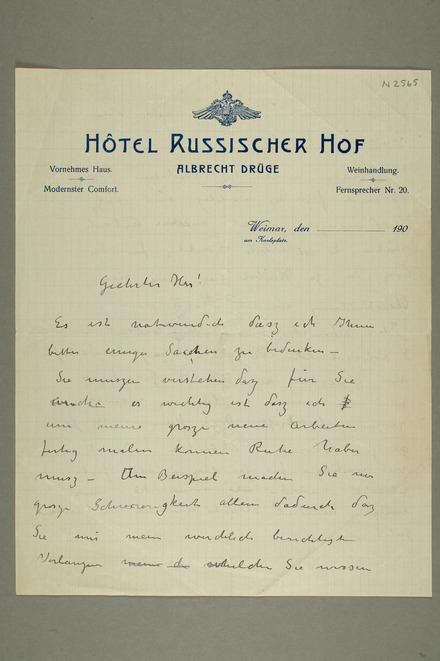 N 2565
HÔTEL RUSSISCHER HOF
ALBRECHT DRÜGE
Vornehmes Haus.
Modernster Comfort.
Weinhandlung.
Fernsprecher Nr. 20.
Weimar, den 190
am Karlsplatz.
Geehrter Herr!
Es ist notwendich dasz ich Ihnen
bitte einige Sachen zu bedenken –
Sie muszen verstehen dasz für Sie
es wichtig ist dasz ich
um meine grosze neue arbeiten
fertig malen können Ruhe haben
musz – Um Beispiel machen Sie mir
grosze Schwerigkeit allein dadurch dasz
Sie mir mein wirklich berechtigte
Verlangen Sie wissen